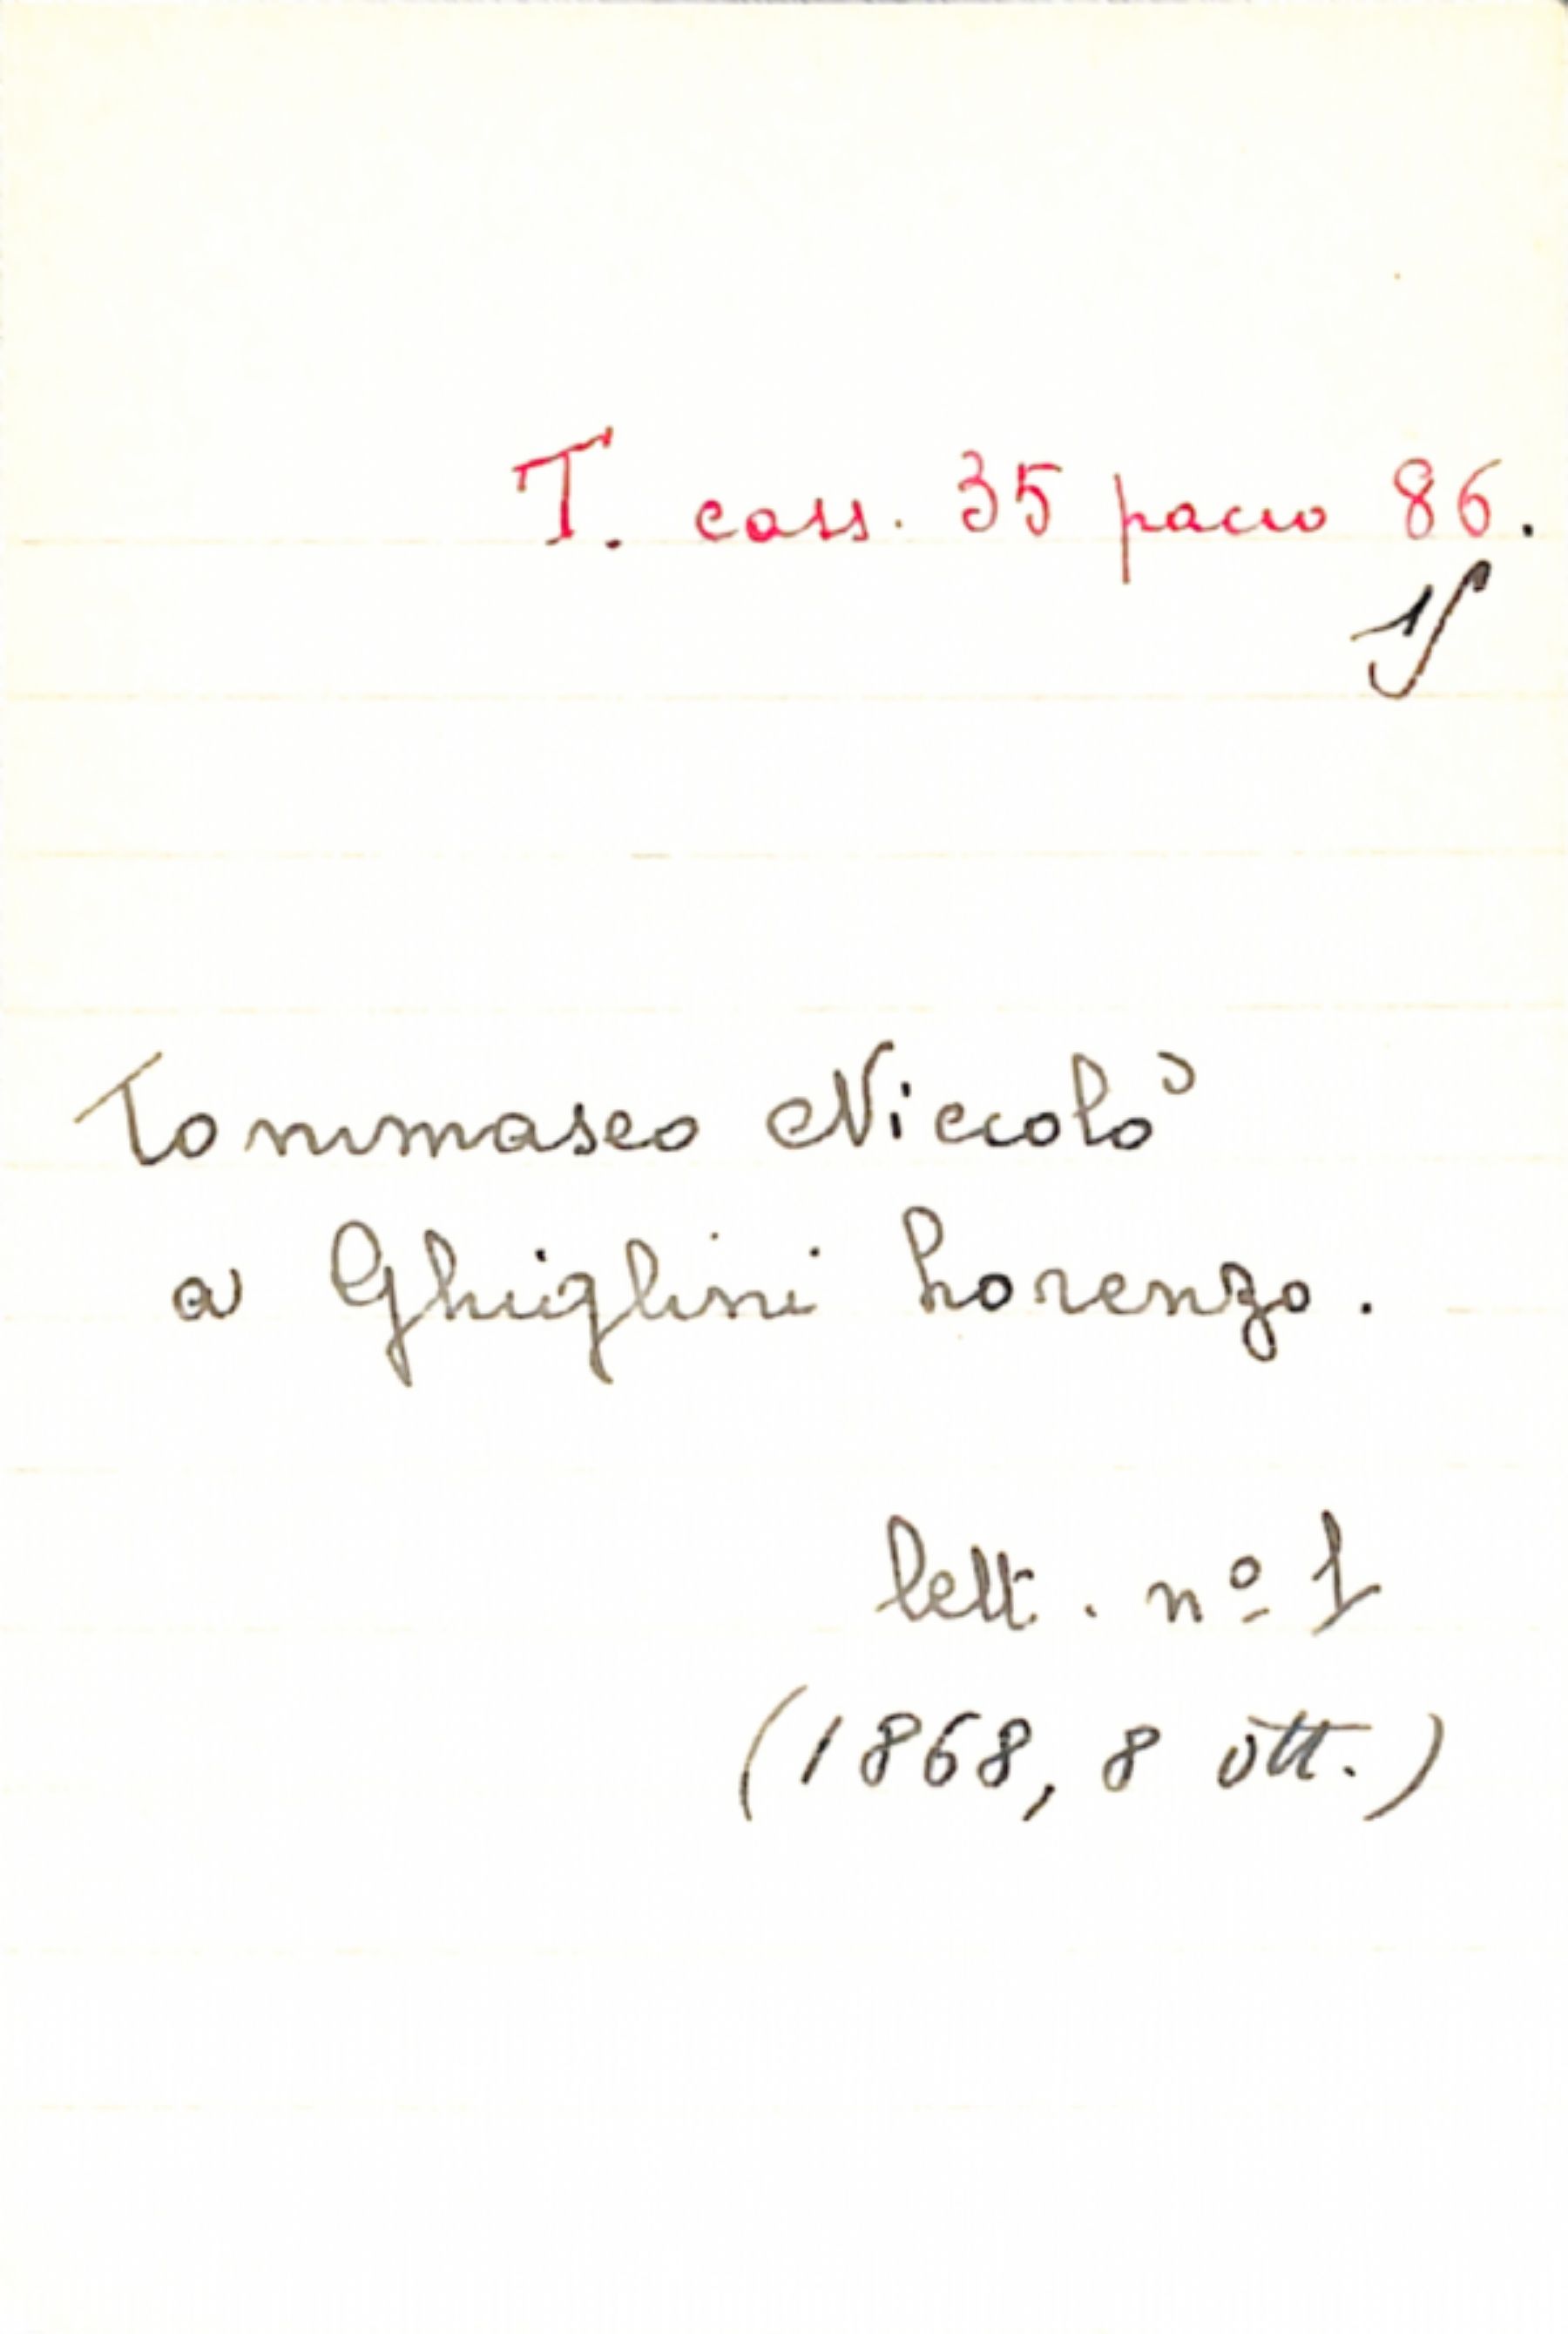 T. cass. 35 pacco 86.
1
Tommaseo Niccolò
a Ghiglini Lorenzo.
lett. nº 1
(1868, 8 ott.)